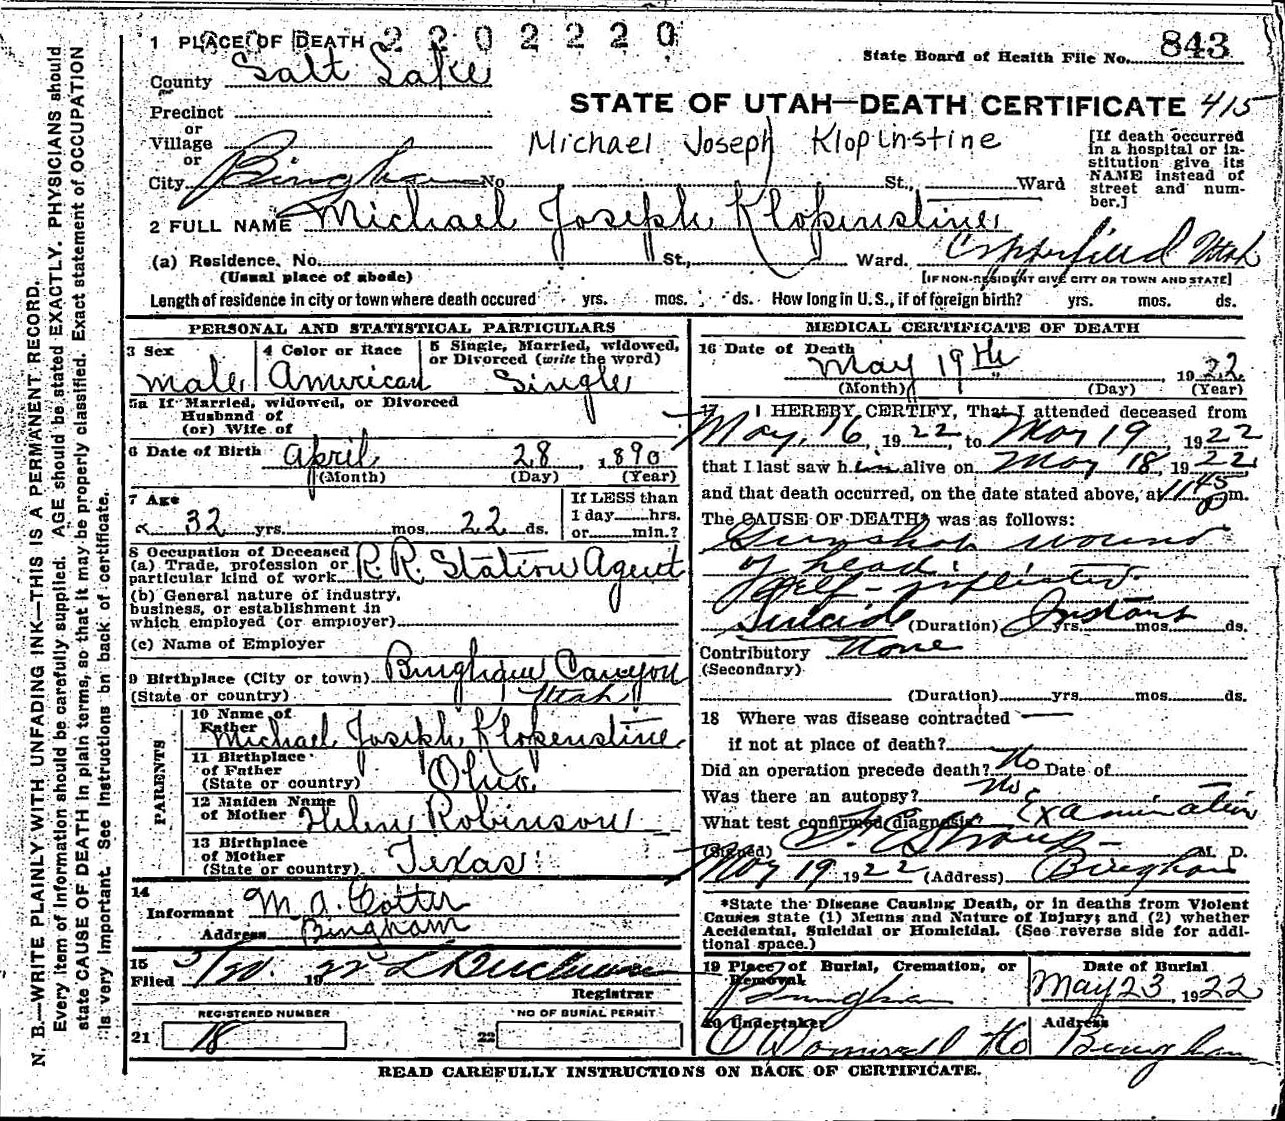 1 PLACE OF DEATH 2202220
State Board of Health File No. 843
County Salt Lake
STATE OF UTAH—DEATH CERTIFICATE 415
Precinct
or
Village
or
City Bingham No. St., Ward
Michael Joseph Klopinstine
[If death occurred
in a hospital or in-
stitution give its
NAME instead of
street and num-
ber.]
2 FULL NAME Michael Joseph Klopenstine
(a) Residence. No. St., Ward. Copperfield Utah
(Usual place of abode) [IF NON-RESIDENT GIVE CITY OR TOWN AND STATE]
Length of residence in city or town where death occured yrs. mos. ds. How long in U. S., if of foreign birth? yrs. mos. ds.
PERSONAL AND STATISTICAL PARTICULARS
3 Sex male
4 Color or Race American
5 Single, Married, widowed,
or Divorced (write the word)
Single
5a If Married, widowed, or Divorced
Husband of
(or) Wife of
6 Date of Birth April 28, 1890
(Month) (Day) (Year)
7 Age
32 yrs. mos. 22 ds.
If LESS than
1 day hrs.
or min.?
8 Occupation of Deceased
(a) Trade, profession or
particular kind of work R. R. Station Agent
(b) General nature of industry,
business, or establishment in
which employed (or employer)
(c) Name of Employer
9 Birthplace (City or town) Bingham Canyon
(State or country) Utah
PARENTS
10 Name of
Father Michael Joseph Klopenstine
11 Birthplace
of Father
(State or country) Ohio
12 Maiden Name
of Mother Helen Robinson
13 Birthplace
of Mother
(State or country) Texas
14
Informant M. A. Cotter
Address Bingham
15
Filed 5/20. 1922
Registrar
REGISTERED NUMBER
21 18
NO OF BURIAL PERMIT
22
MEDICAL CERTIFICATE OF DEATH
16 Date of Death
May 19th, 1922
(Month) (Day) (Year)
17 I HEREBY CERTIFY, That I attended deceased from
May, 16, 1922 to May 19, 1922
that I last saw him alive on May 18, 1922
and that death occurred, on the date stated above, at 11 45 P m.
The CAUSE OF DEATH* was as follows:
Gunshot wound
of head
Self-inflicted
Suicide (Duration) Instant yrs. mos. ds.
Contributory None
(Secondary)
(Duration) yrs. mos. ds.
18 Where was disease contracted —
if not at place of death?
Did an operation precede death? No Date of
Was there an autopsy? No
What test confirmed diagnosis? Examination
(Signed) M. D.
May 19 1922 (Address) Bingham
*State the Disease Causing Death, or in deaths from Violent
Causes state (1) Means and Nature of Injury; and (2) whether
Accidental, Suicidal or Homicidal. (See reverse side for addi-
tional space.)
19 Place of Burial, Cremation, or
Removal
Bingham
Date of Burial
May 23, 1922
20 Undertaker
Address
Bingham
READ CAREFULLY INSTRUCTIONS ON BACK OF CERTIFICATE.
N. B.—WRITE PLAINLY WITH UNFADING INK—THIS IS A PERMANENT RECORD.
Every item of information should be carefully supplied. AGE should be stated EXACTLY. PHYSICIANS should
state CAUSE OF DEATH in plain terms, so that it may be properly classified. Exact statement of OCCUPATION
is very important. See Instructions on back of certificate.